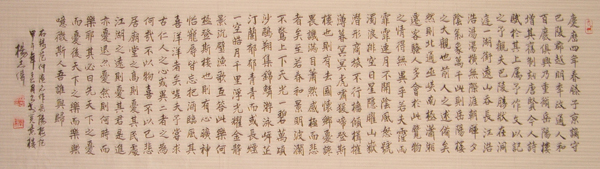 慶曆四年春滕子京謫守
巴陵郡越明季政通人和
百廢俱興乃重脩岳陽樓
增其舊制刻唐賢今人詩
賦於其上屬予作文以記
之予觀夫巴陵勝狀在洞
庭一湖銜遠山吞長江浩
浩湯湯橫無際涯朝暉夕
陰氣象萬千此則岳陽樓
之大觀也前人之述備矣
然則北通巫峽南極瀟湘
遷客騷人多會於此覽物
之情得無異乎若夫霪雨
霏霏連月不開陰風怒號
濁浪排空日星隱曜山嶽
潛形商旅不行檣傾楫摧
薄暮冥冥虎嘯猿啼登斯
樓也則有去國懷鄉憂讒
畏譏滿目蕭然感極而悲
者矣至若春和景明波瀾
不驚上下天光一碧萬頃
沙鷗翔集錦鱗游泳岸芷
汀蘭郁郁青青而或長煙
一空皓月千里浮光耀金靜
影沉璧漁歌互答此樂何
極登斯樓也則有心曠神
怡寵辱皆忘把酒臨風其
喜洋洋者矣嗟夫予嘗求
古仁人之心或異二者之為
何哉不以物喜不以己悲
居廟堂之高則憂其民處
江湖之遠則憂其君是進
亦憂退亦憂然則何時而
樂耶其必曰先天下之憂
而憂後天下之樂而樂歟
噫微斯人吾誰與歸
右錄范仲淹岳陽樓記